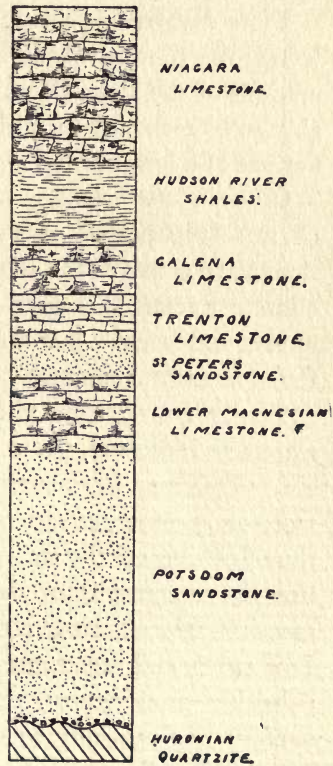 NIAGARA
LIMESTONE.
HUDSON RIVER
SHALES.
GALENA
LIMESTONE.
TRENTON
LIMESTONE
ST PETERS
SANDSTONE.
LOWER MAGNESIAN
LIMESTONE.
POTSDOM
SANDSTONE.
HURONIAN
QUARTZITE.